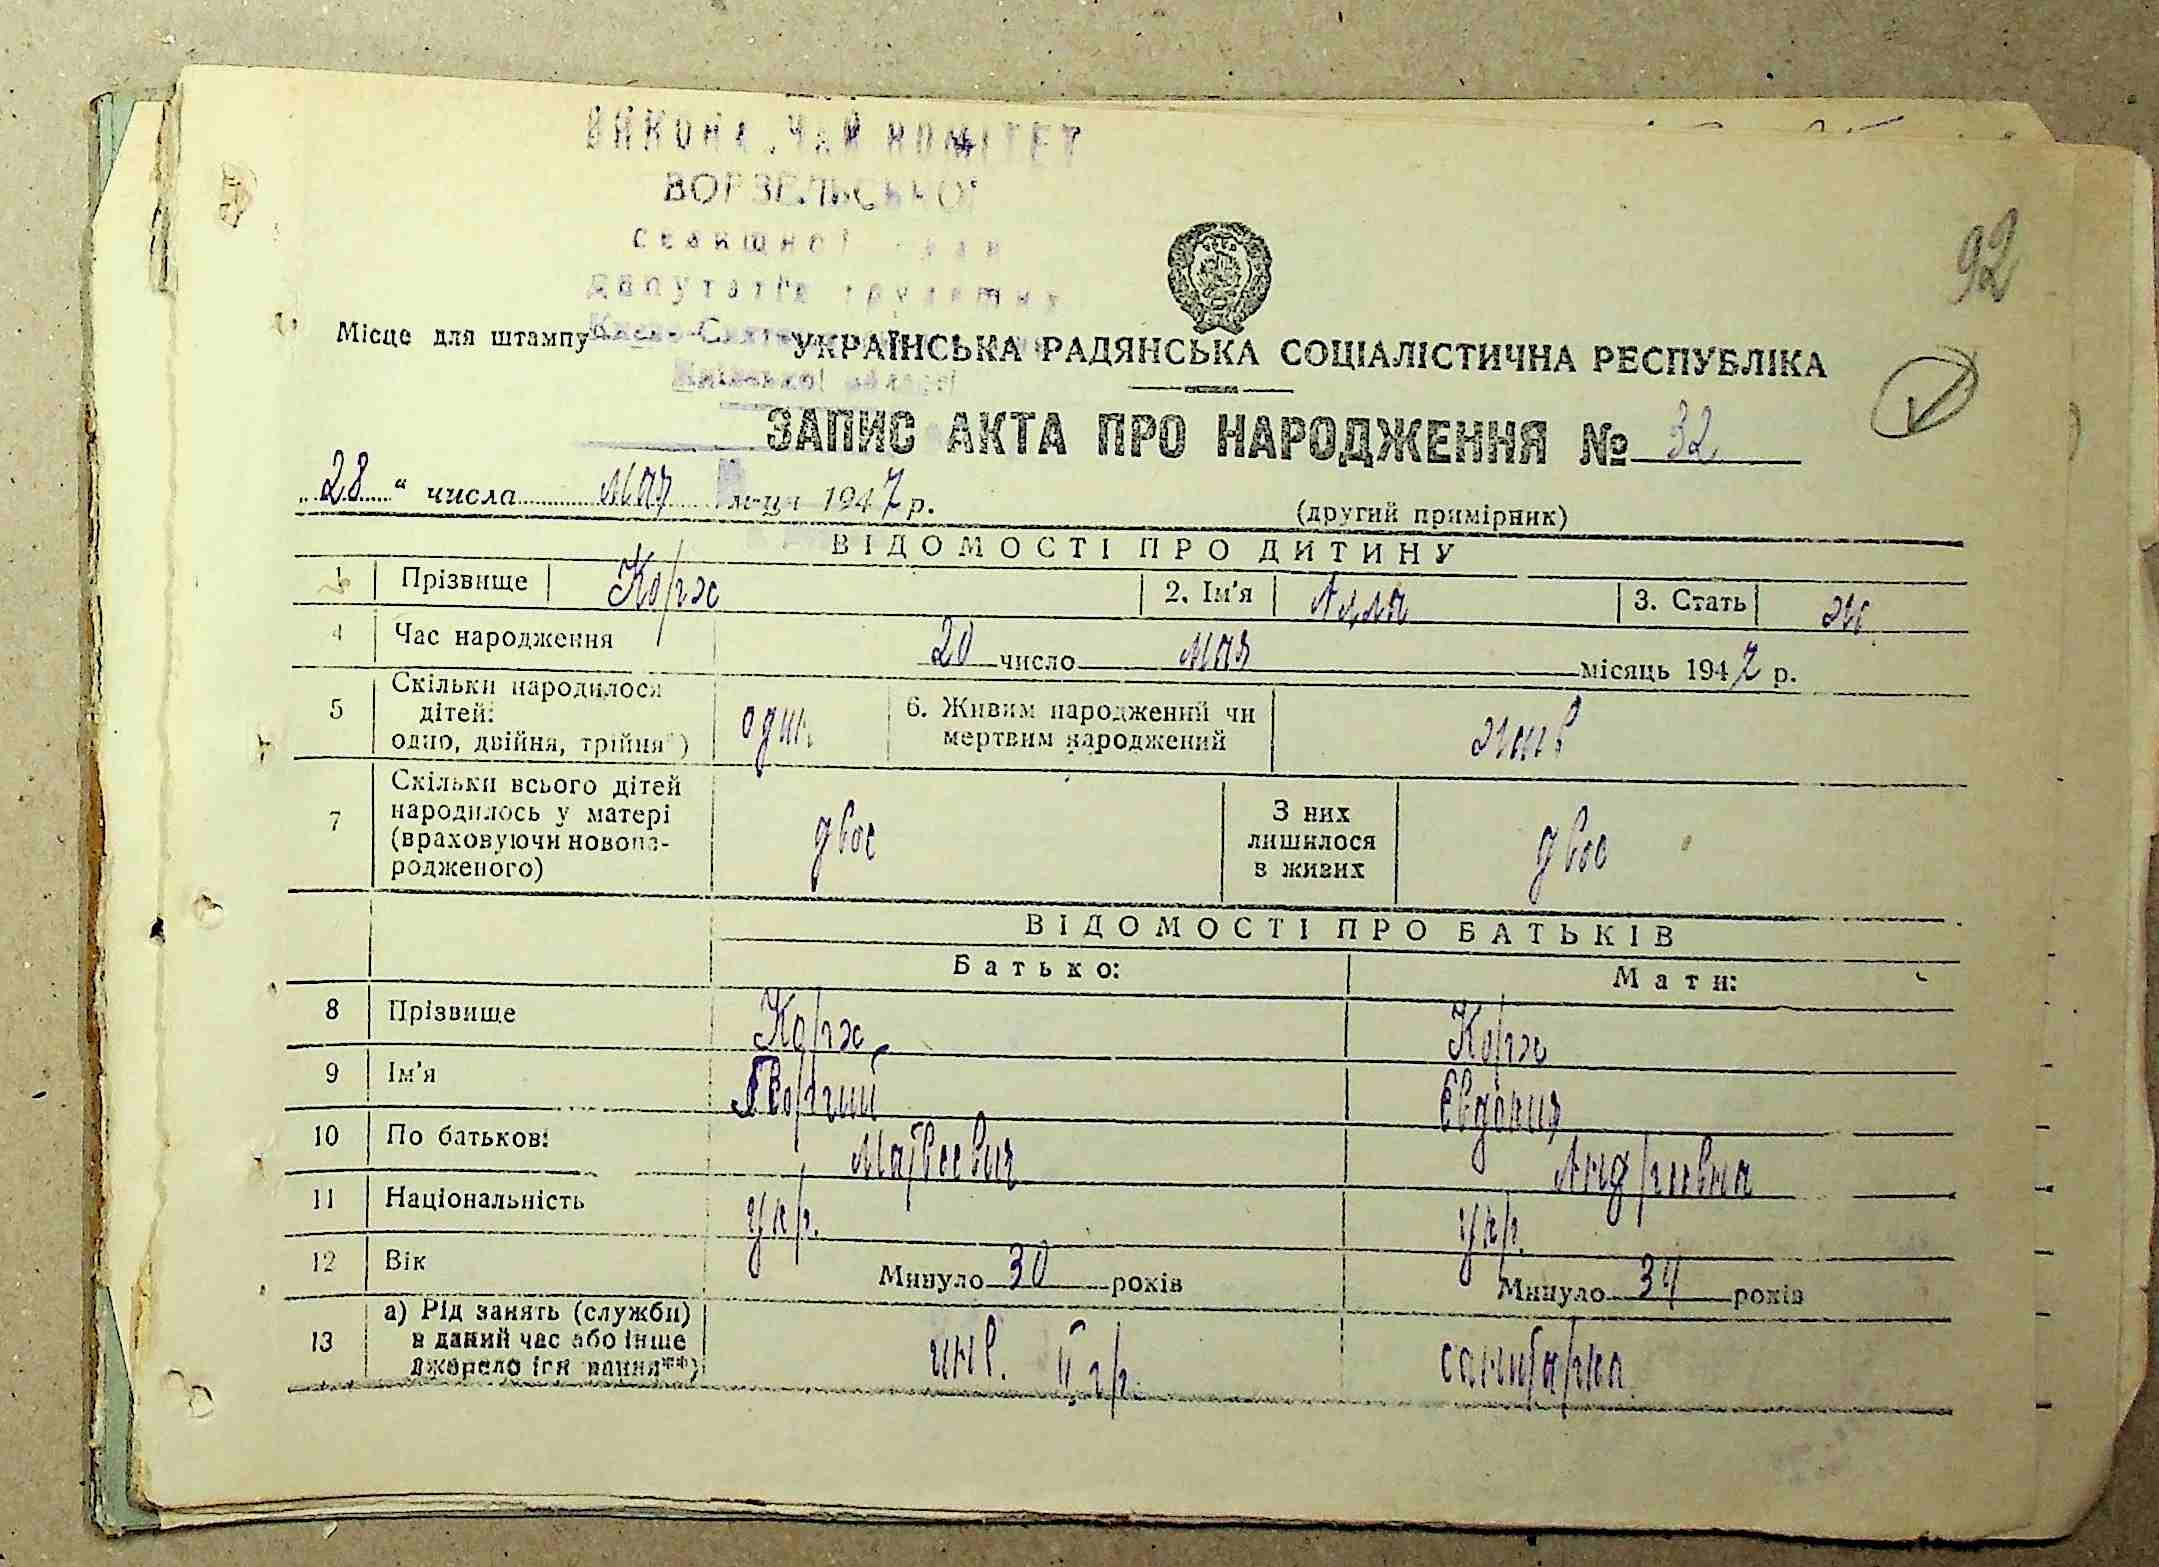 ВИКОНАВЧИЙ КОМІТЕТ
ВОРЗЕЛЬСЬКОЇ
селищної ради
депутатів трудящих
Києво-Святошинського
Київської області
92
Місце для штампу
УКРАЇНСЬКА РАДЯНСЬКА СОЦІАЛІСТИЧНА РЕСПУБЛІКА
ЗАПИС АКТА ПРО НАРОДЖЕННЯ № 32
„28“ числа мая м-ця 1947 р.
(другий примірник)
ВІДОМОСТІ ПРО ДИТИНУ
1 Прізвище Корж 2. Ім'я Алла 3. Стать ж
4 Час народження 20 число мая місяць 1947 р.
5 Скільки народилося дітей: одно, двійня, трійня*) один 6. Живим народжений чи мертвим народжений жив
7 Скільки всього дітей народилось у матері (враховуючи новонародженого) двое З них лишилося в живих двое
ВІДОМОСТІ ПРО БАТЬКІВ
Батько: Мати:
8 Прізвище Корж Корж
9 Ім'я Георгий Евдокия
10 По батькові Матвеевич Андриевна
11 Національність укр. укр.
12 Вік Минуло 30 років Минуло 34 років
13 а) Рід занять (служби) в даний час або інше джерело існування**) инв. II гр. санитарка